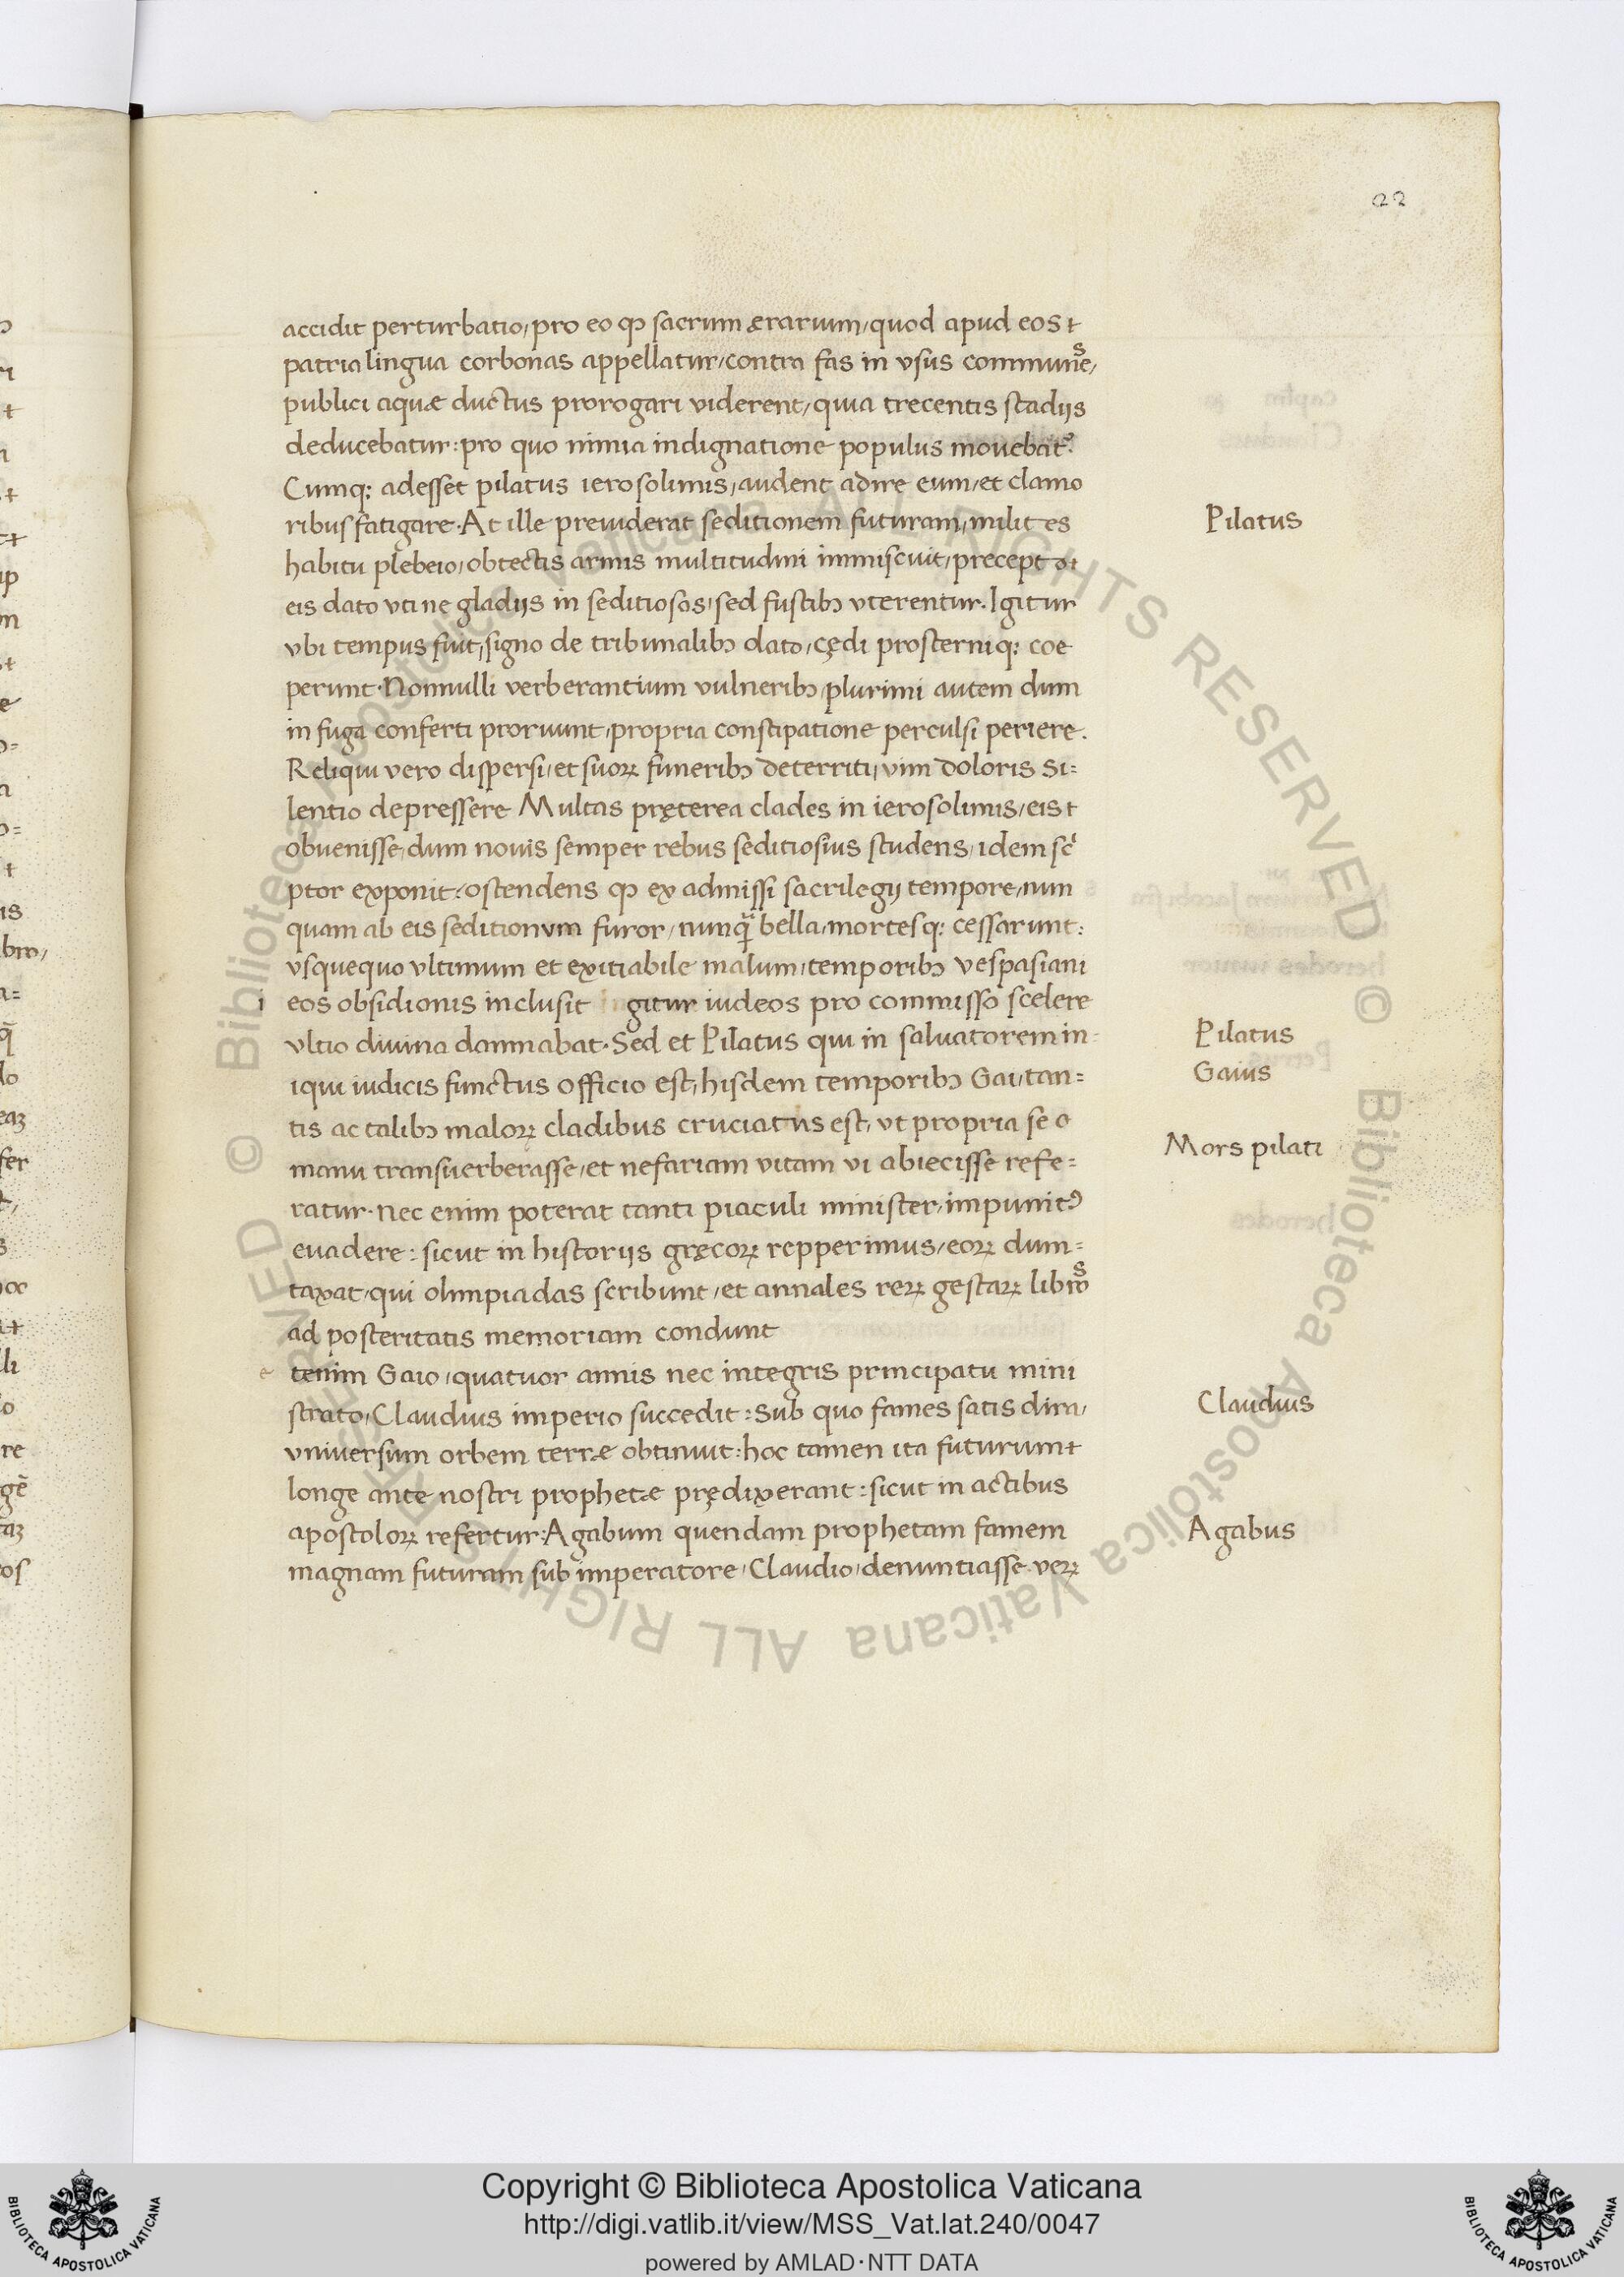 22
accidit perturbatio, pro eo ꝙ sacrum ærarium, quod apud eos t
patria lingua corbonas appellatur, contra fas in vsus communeˢ,
publici aquæ ductus prorogari viderent, quia trecentis stadijs
deducebatur: pro quo nimia indignatione populus mouebatˀ.
Cumq; adesset pilatus ierosolimis, audent adire eum, et clamo
ribus fatigare. At ille preuiderat seditionem futuram, milites
Pilatus
habitu plebeio, obtectis armis multitudini immiscuit, precepto
eis dato vti ne gladijs in seditiosos, sed fustibꝫ vterentur. Igitur
vbi tempus fuit, signo de tribunalibꝫ dato, cędi prosterniq; coe
perunt. Nonnulli verberantium vulneribꝫ, plurimi autem dum
in fuga conferti proruunt, propria constipatione perculsi periere.
Reliqui vero dispersi, et suoꝝ funeribꝫ deterriti, vim doloris si=
lentio depressere Multas pręterea clades in ierosolimis, eis t
obuenisse, dum nouis semper rebus seditiosius studens, idem scⁱ
ptor exponit: ostendens ꝙ ex admissi sacrilegij tempore, nun
quam ab eis seditionum furor, nunq̃ bella, mortesq; cessarunt:
vsquequo vltimum et exitiabile malum, temporibꝫ vespasiani
i eos obsidionis inclusit gitur iudeos pro commisso scelere
vltio diuina damnabat. Sed et Pilatus qui in saluatorem in=
Pilatus
iqui iudicis functus officio est, hisdem temporibꝫ Gai, tan=
Gaius
tis ac talibꝫ maloꝝ cladibus cruciatus est, vt propria se
manu transuerberasse, et nefariam vitam vi abiecisse refe=
Mors pilati
ratur. nec enim poterat tanti piaculi minister, impunitꝰ
euadere: sicut in historijs gręcoꝝ repperimus, eoꝝ dum=
taxat, qui olimpiadas scribunt, et annales reꝝ gestaꝝ libroˢ
ad posteritatis memoriam condunt
e tenim Gaio, quatuor annis nec integris principatu mini
strato, Claudius imperio succedit: Sub quo fames satis dira,
Claudius
vniuersum orbem terræ obtinuit: hoc tamen ita futurum t
longe ante nostri prophetæ prędixerant: sicut in actibus
apostoloꝝ refertur: Agabum quendam prophetam famem
Agabus
magnam futuram sub imperatore, Claudio, denuntiasse. veꝝ
© Biblioteca Apostolica Vaticana ALL RIGHTS RESERVED © Biblioteca Apostolica Vaticana ALL RIGHTS RESERVED
Copyright © Biblioteca Apostolica Vaticana
http://digi.vatlib.it/view/MSS_Vat.lat.240/0047
powered by AMLAD·NTT DATA
BIBLIOTECA APOSTOLICA VATICANA
BIBLIOTECA APOSTOLICA VATICANA